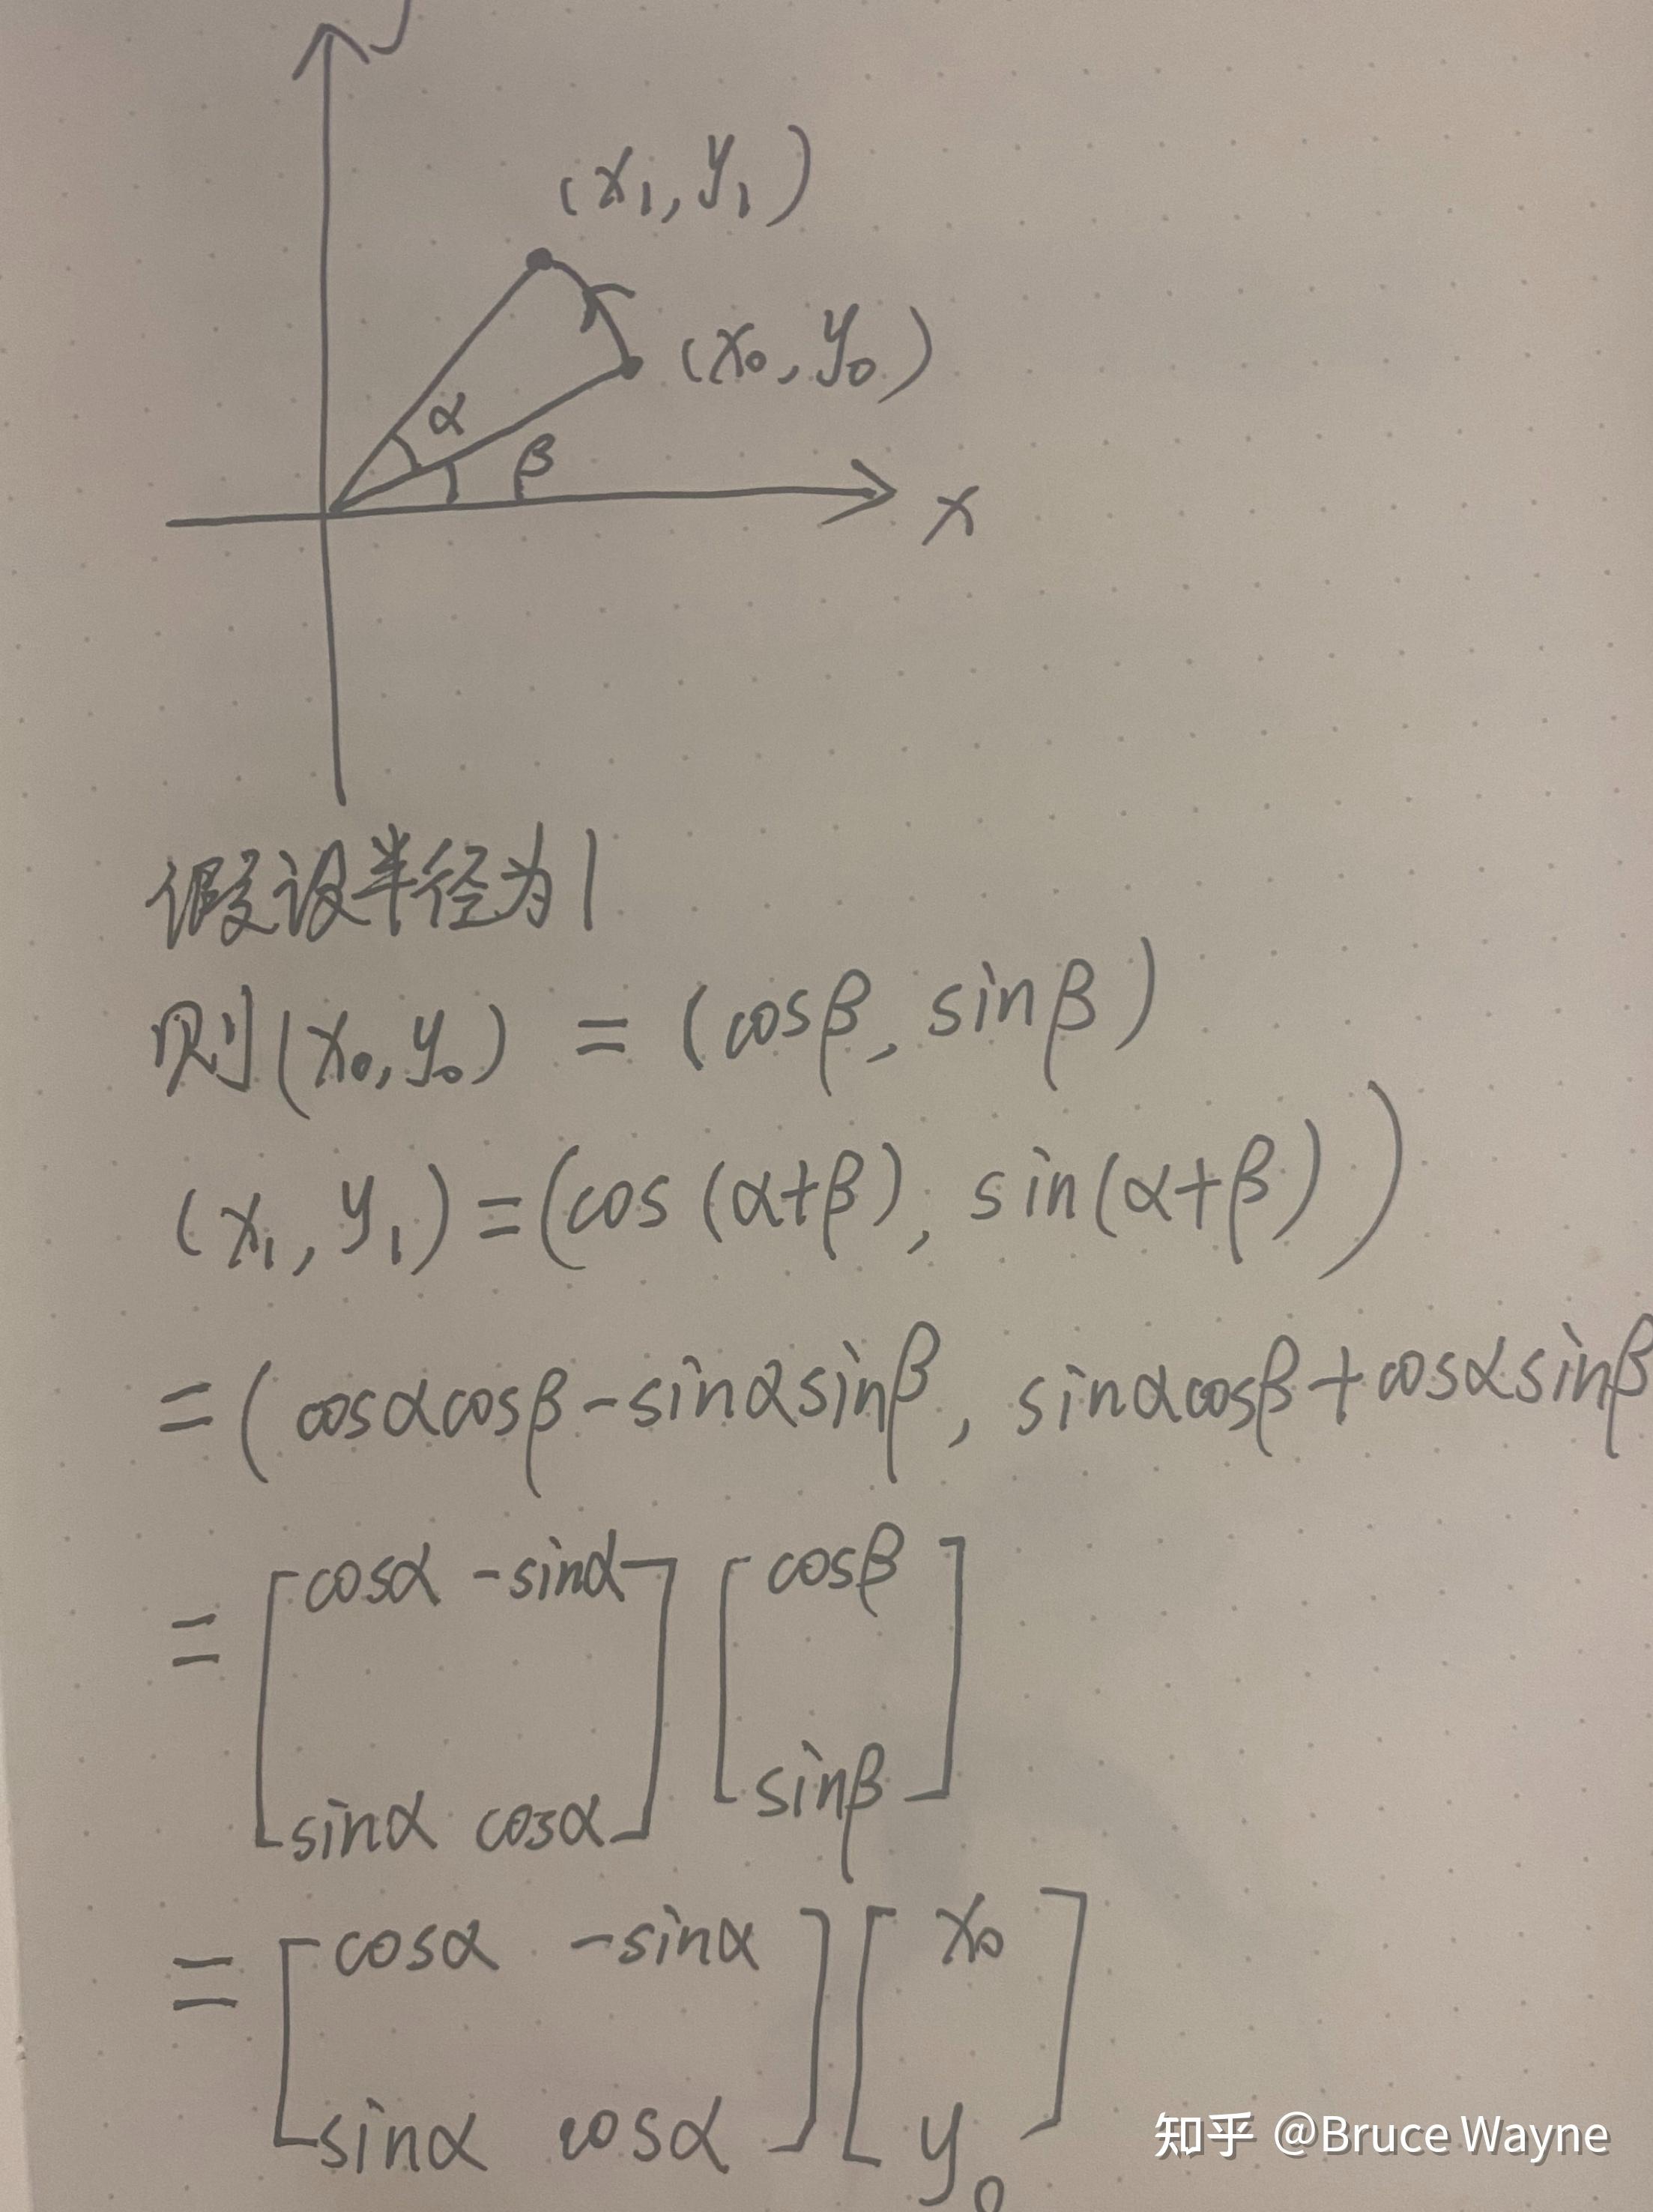 y
(x₁, y₁)
(x₀, y₀)
α
β
x
假设半径为1
则(x₀, y₀) = (cosβ, sinβ)
(x₁, y₁) = (cos(α+β), sin(α+β))
= (cosαcosβ-sinαsinβ, sinαcosβ+cosαsinβ
= [cosα -sinα] [cosβ]
[sinα cosα] [sinβ]
= [cosα -sinα] [x₀]
[sinα cosα] [y₀]
知乎 @Bruce Wayne